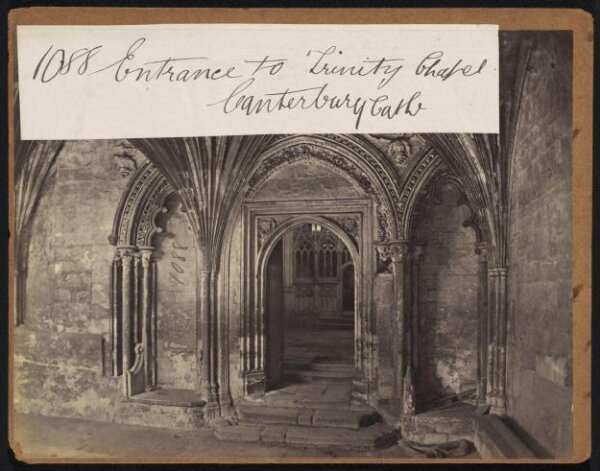 1088 Entrance to Trinity Chapel
Canterbury Cath
1088